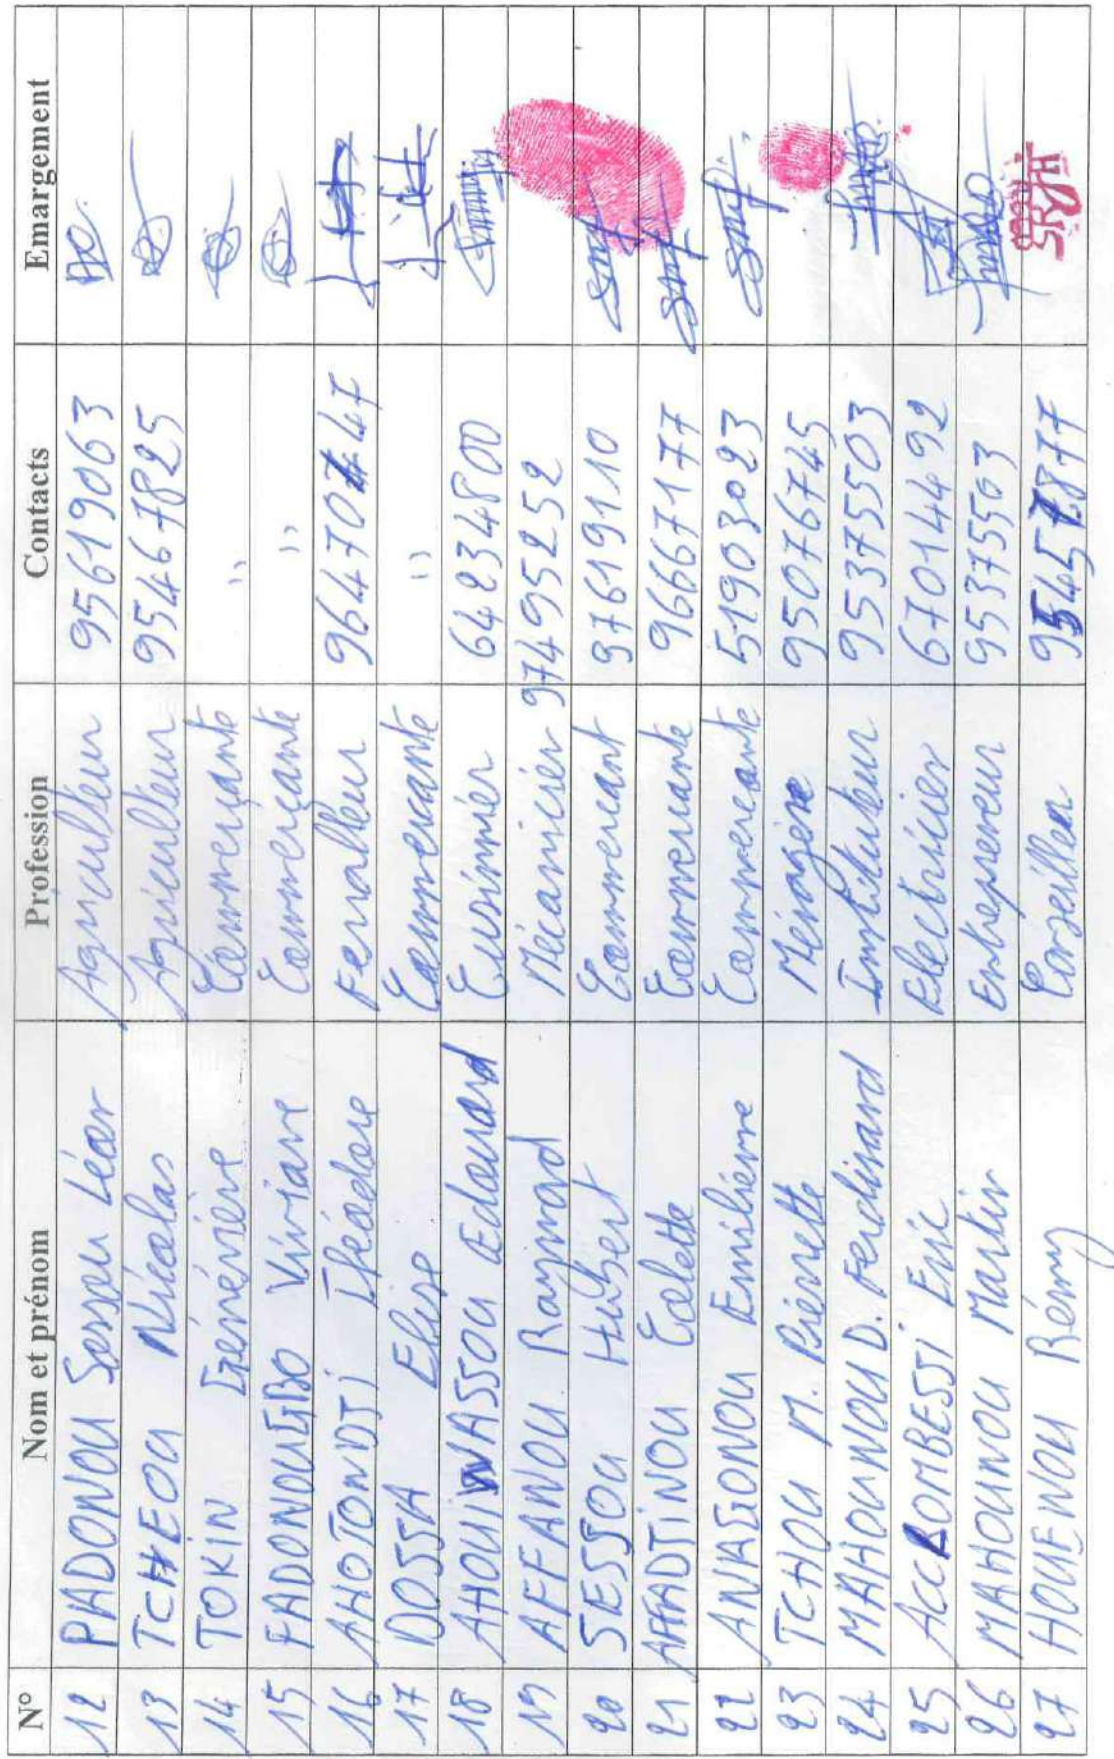 N° Nom et prénom Profession Contacts Emargement
12 PADONOU Sessou Léon Agriculteur 95619063
13 TCHEOU Nicolas Agriculteur 95467825
14 TOKIN Généviève Commerçante "
15 FADONOUGBO Viviane Commerçante "
16 AHOTONDJI Théodore Ferrailleur 96470747
17 DOSSA Elise Commercante "
18 AHOUIWASSOU Edouard Cuisinier 64234800
19 AFFANOU Raymond Mécanicien 97495252
20 SESSOU Hubert Commercant 97619110
21 AFFADJINOU Colette Commercante 96667177
22 ANAGONOU Emilienne Commercante 51903023
23 TCHOU M. Pierrette Ménagère 95076745
24 MAHOUNOU D. Ferdinand Instituteur 95375503
25 ACCROMBESSI Eric Electricien 67014492
26 MAHOUNOU Martin Entrepreneur 95375503
27 HOUENOU Rémy Conseiller 95457877